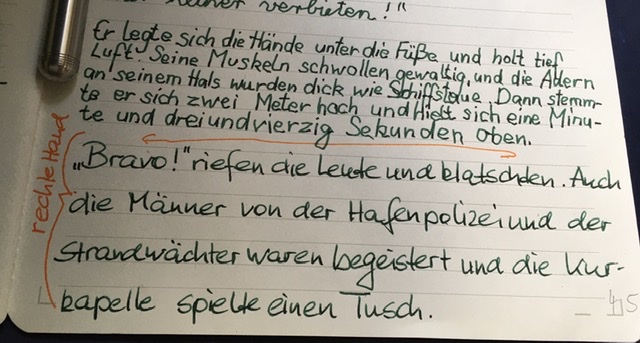 keiner verbieten!"
Er legte sich die Hände unter die Füße und holt tief
Luft. Seine Muskeln schwollen gewaltig, und die Adern
an seinem Hals wurden dick wie Schiffstaue. Dann stemm-
te er sich zwei Meter hoch und hielt sich eine Minu-
te und dreiundvierzig Sekunden oben.
rechte Hand
„Bravo!" riefen die Leute und klatschten. Auch
die Männer von der Hafenpolizei und der
Strandwächter waren begeistert und die Kur-
kapelle spielte einen Tusch.